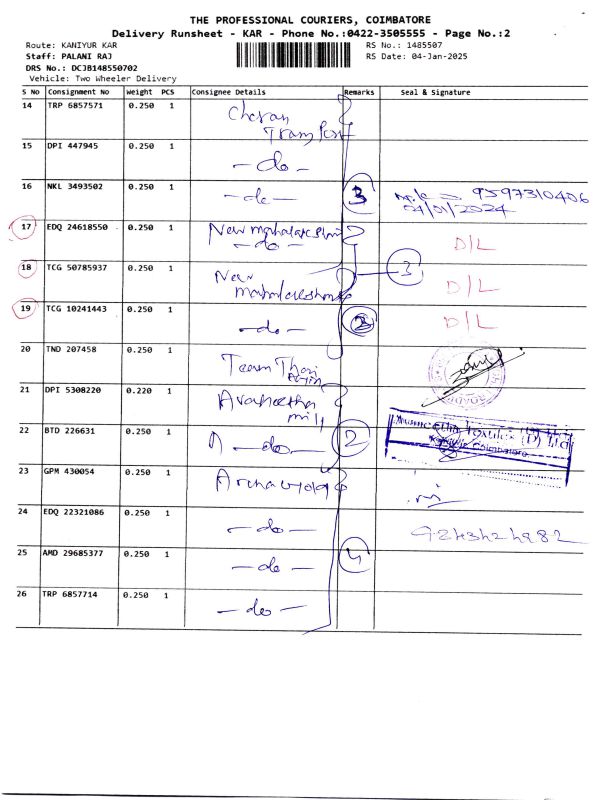 THE PROFESSIONAL COURIERS, COIMBATORE
Delivery Runsheet - KAR - Phone No.:0422-3505555 - Page No.:2
Route: KANIYUR KAR
RS No.: 1485507
Staff: PALANI RAJ
RS Date: 04-Jan-2025
DRS No.: DCJB148550702
Vehicle: Two Wheeler Delivery
S No Consignment No Weight PCS Consignee Details Remarks Seal & Signature
14 TRP 6857571 0.250 1 Cheran
Transport
15 DPI 447945 0.250 1 -do-
16 NKL 3493502 0.250 1 -do- 3 9597310406
04/01/2024
17 EDQ 24618550 0.250 1 New mahalakshmi
-do- D/L
18 TCG 50785937 0.250 1 New 3 D/L
19 TCG 10241443 0.250 1 -do- D/L
20 TND 207458 0.250 1 Team Thai
21 DPI 5308220 0.220 1
mill
22 BTD 226631 0.250 1 -do- 2
Textiles (P) Ltd
Coimbatore
23 GPM 430054 0.250 1
24 EDQ 22321086 0.250 1 -do-
25 AMD 29685377 0.250 1 -do- 4
26 TRP 6857714 0.250 1 -do-